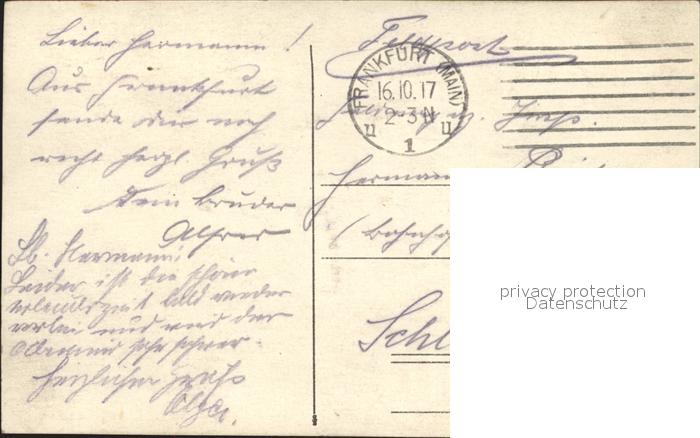 Lieber Hermann!
Aus Frankfurt
sende dir noch
recht herzl. Gruß
Dein Bruder
Alfred
Lb. Hermann!
Leider ist die schöne
Urlaubszeit bald wieder
vorbei und wird der
sehr schwer.
Herzlichen Gruß
Olga.
Feldpost
FRANKFURT (MAIN)
16.10.17
2-3N
u 1 u
Herman
(Bahnho
Schl
privacy protection
Datenschutz